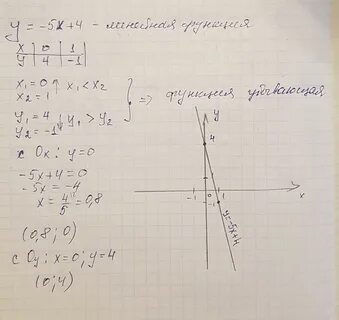 y = -5x+4 - линейная функция
x | 0 | 1
y | 4 | -1
x₁=0 ↑ x₁ < x₂
x₂=1
y₁=4 ↓ y₁ > y₂
y₂=-1
} => функция убывающая
с Ox: y=0
-5x+4=0
-5x=-4
x = 4/5 = 0,8
(0,8; 0)
с Oy: x=0; y=4
(0; 4)
y
4
-1 0 1
x
-1
y=-5x+4